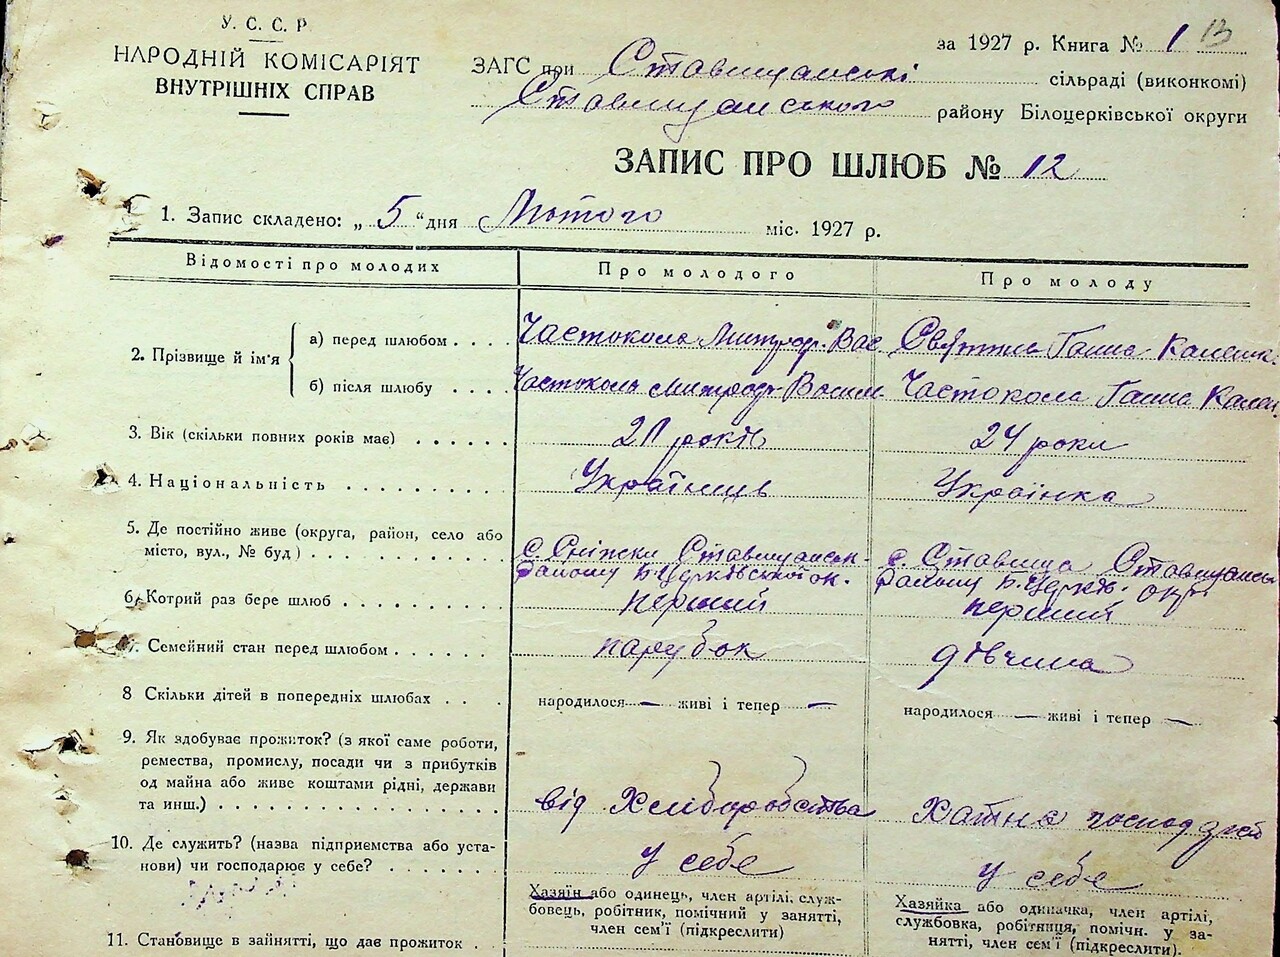 У. С. С. Р.
НАРОДНІЙ КОМІСАРІЯТ
ВНУТРІШНІХ СПРАВ
за 1927 р. Книга № 1 13
ЗАГС при Ставищанські сільраді (виконкомі)
Ставищанського району Білоцерківської округи
ЗАПИС ПРО ШЛЮБ № 12
1. Запис складено: „ 5 “ дня Лютого міс. 1927 р.
Відомості про молодих
Про молодого
Про молоду
2. Прізвище й ім'я
а) перед шлюбом . . . .
Частокола Митроф. Вас
Ганна
б) після шлюбу . . . .
Частоколь Митроф Васил
Частокола Ганна
3. Вік (скільки повних років має) . . . . . .
21 років
24 роки
4. Національність . . . . . . . . . .
Українець
Українка
5. Де постійно живе (округа, район, село або
місто, вул., № буд) . . . . . . . . . . .
с. Сніжки Ставищанськ.
району Б.Церківської ок.
с. Ставища Ставищанськ
району Б. Церків. окр
6. Котрий раз бере шлюб . . . . . . . . .
перший
перший
7. Семейний стан перед шлюбом . . . . . .
парубок
дівчина
8 Скільки дітей в попередніх шлюбах . . .
народилося — живі і тепер —
народилося — живі і тепер —
9. Як здобуває прожиток? (з якої саме роботи,
ремества, промислу, посади чи з прибутків
од майна або живе коштами рідні, держави
та инш.) . . . . . . . . . . . . . . . .
від Хліборобства
Хатнє
10. Де служить? (назва підприємства або уста-
нови) чи господарює у себе? . . . . . . .
у себе
у себе
11. Становище в зайнятті, що дає прожиток .
Хазяїн або одинець, член артілі, служ-
бовець, робітник, помічний у занятті,
член сем'ї (підкреслити)
Хазяйка або одиначка, член артілі,
службовка, робітниця, помічн. у за-
нятті, член сем'ї (підкреслити).